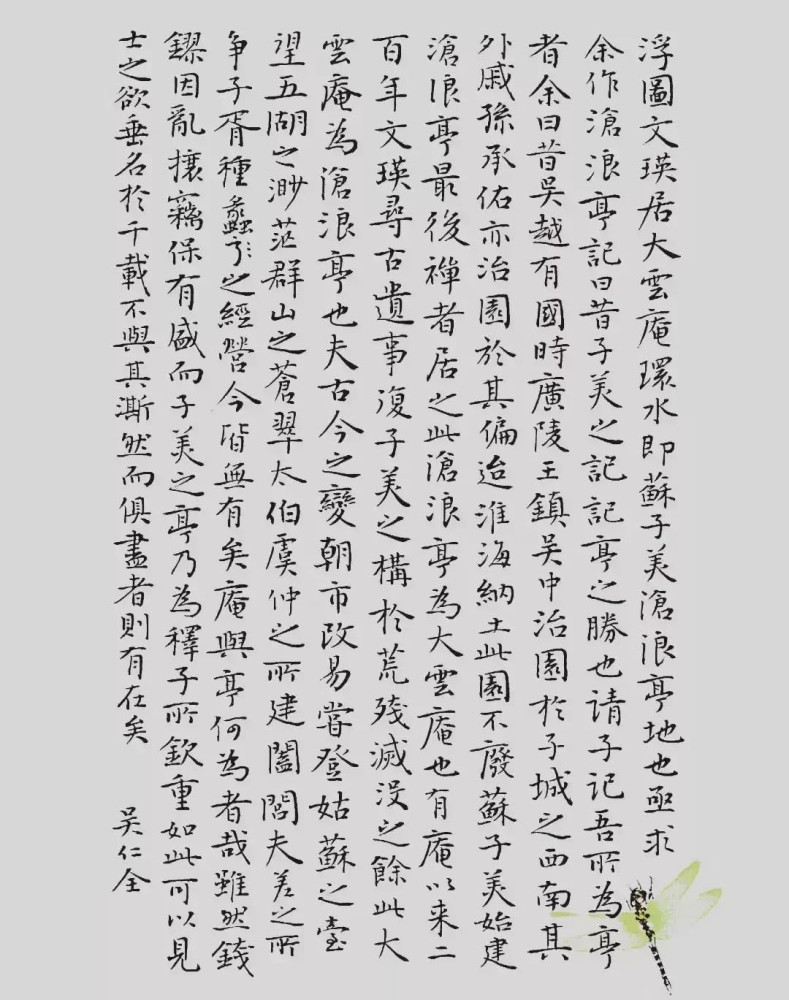 浮圖文瑛居大雲庵環水即蘇子美滄浪亭地也亟求
余作滄浪亭記曰昔子美之記記亭之勝也請子記吾所為亭
者余曰昔吳越有國時廣陵王鎮吳中治園於子城之西南其
外戚孫承佑亦治園於其偏迨淮海納土此園不廢蘇子美始建
滄浪亭最後禪者居之此滄浪亭為大雲庵也有庵以来二
百年文瑛尋古遺事復子美之構於荒殘滅没之餘此大
雲庵為滄浪亭也夫古今之變朝市改易嘗登姑蘇之臺
望五湖之渺茫群山之蒼翠太伯虞仲之所建闔閭夫差之所
争子胥種蠡之經營今皆無有矣庵與亭何為者哉雖然錢
鏐因亂攘竊保有盛而子美之亭乃為釋子所欽重如此可以見
士之欲垂名於千載不與其澌然而俱盡者則有在矣
吴仁全